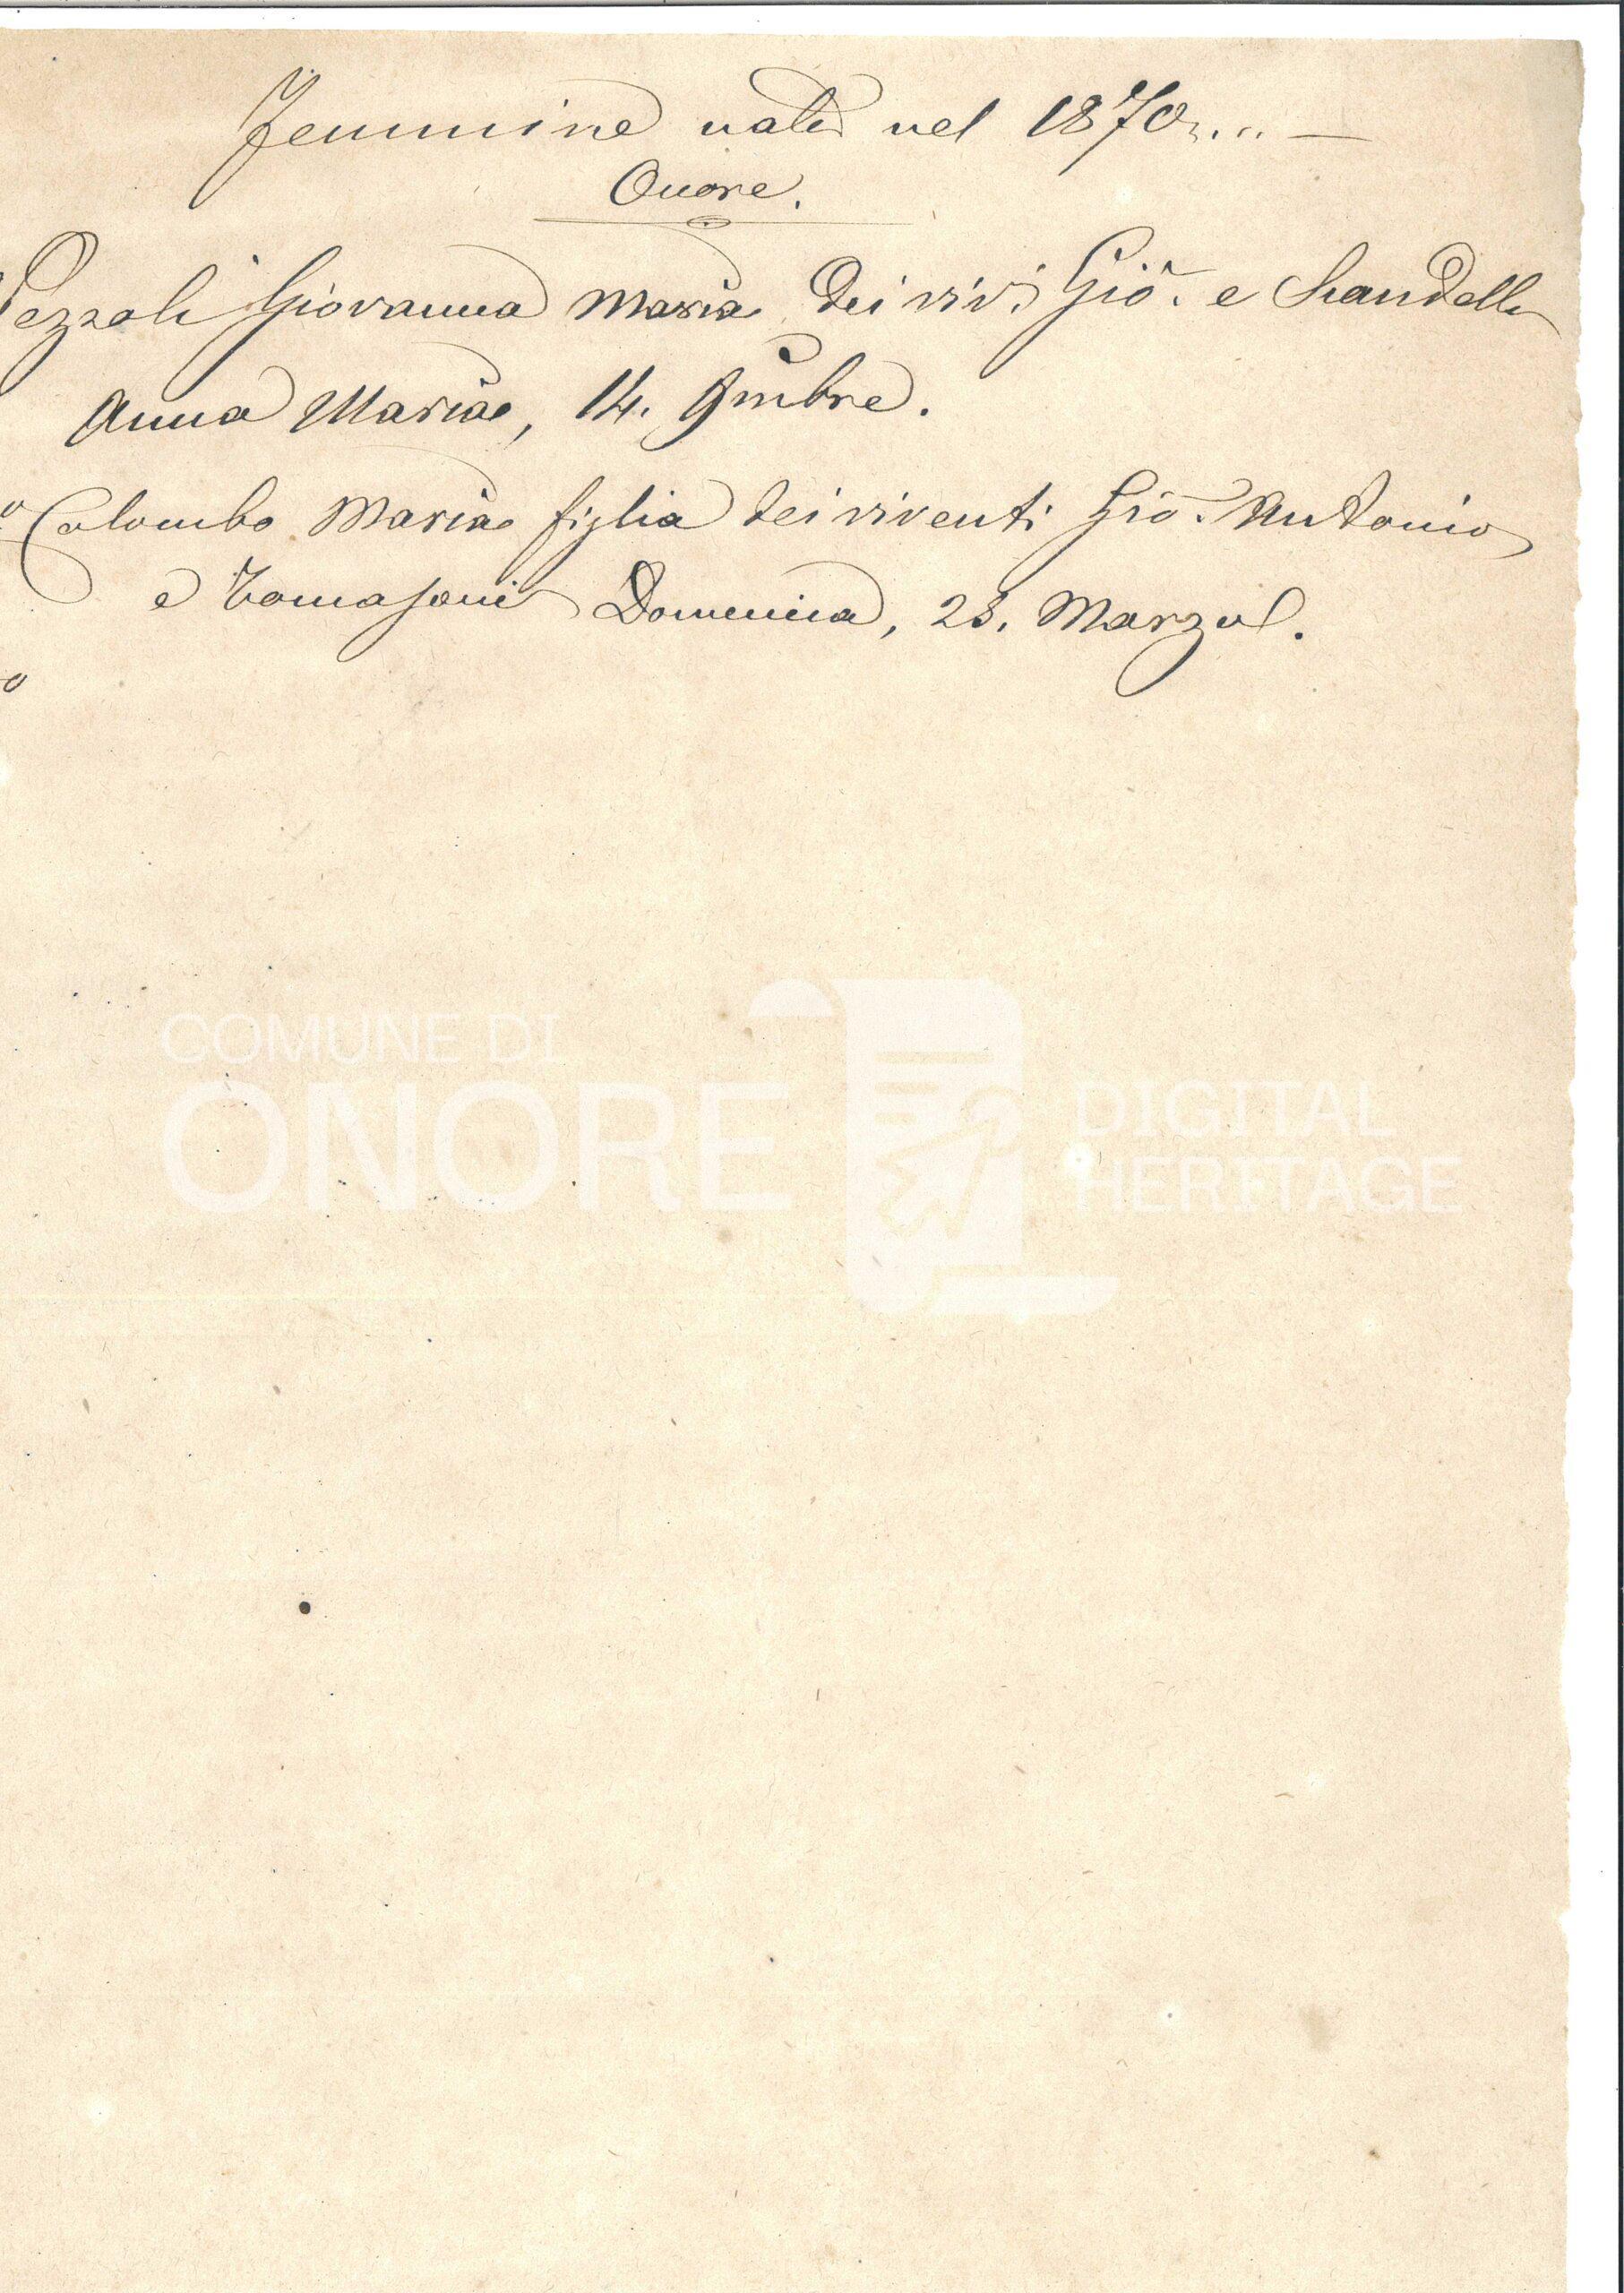 Femmine nate nel 1870.... —
Onore.
Pezzoli Giovanna Maria dei vivi Gio. e Scandella
Anna Maria, 14. 9mbre.
Colombo Maria figlia dei viventi Gio. Antonio
e Tomasoni Domenica, 23. Marzo.
COMUNE DI
ONORE
DIGITAL
HERITAGE